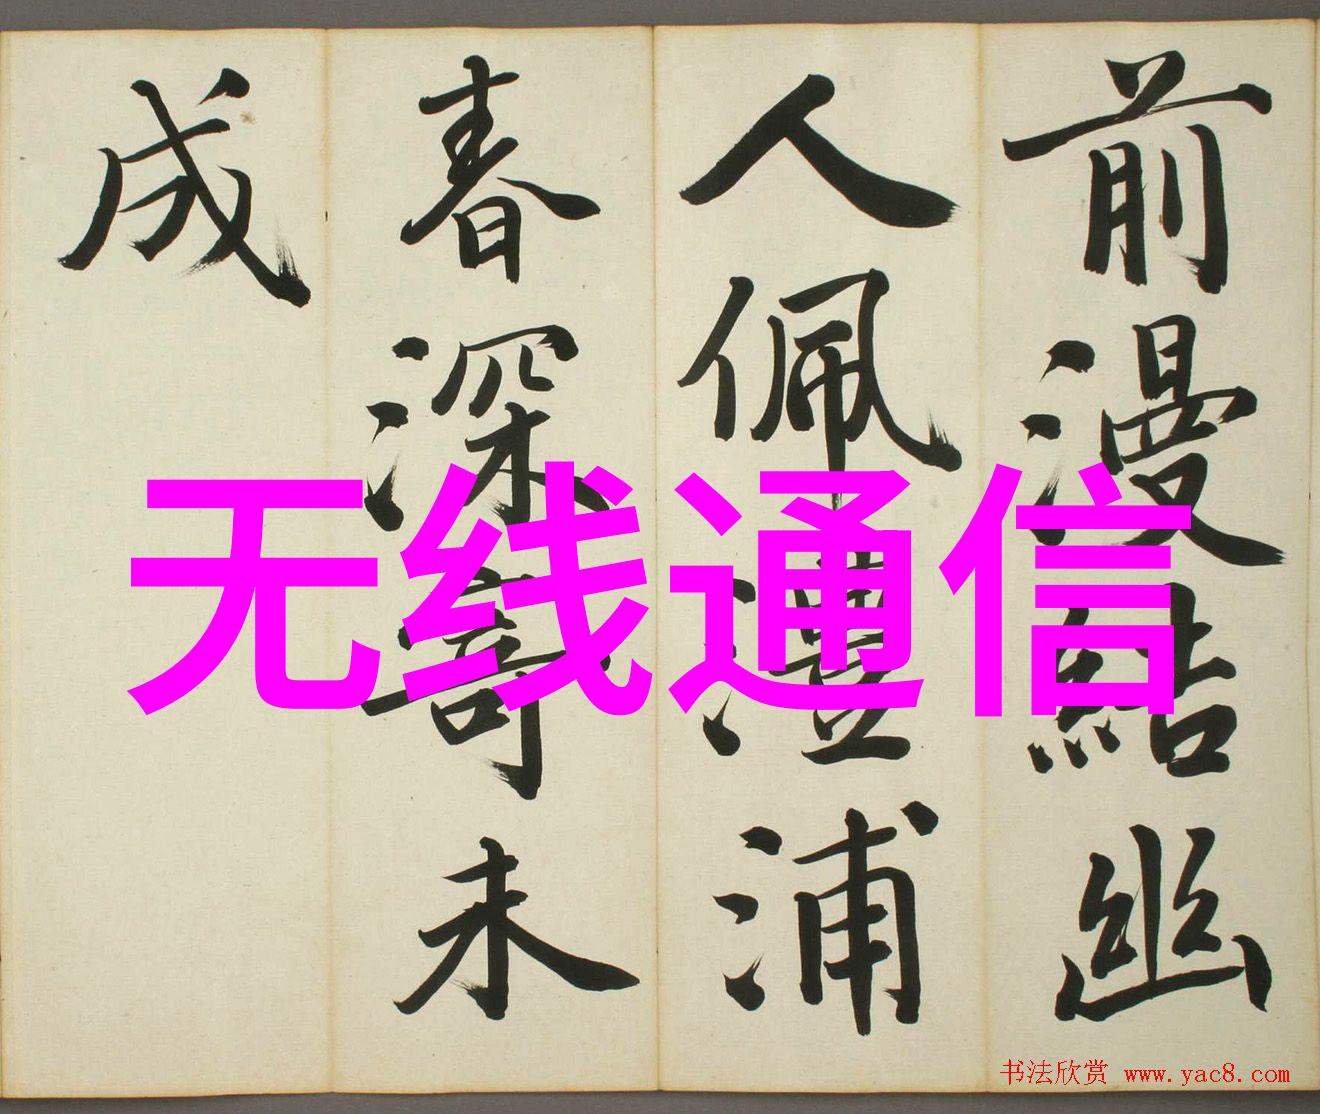 前漫結幽
人佩澧浦
春深寄未
成
无线通信
书法欣赏 www.yac8.com